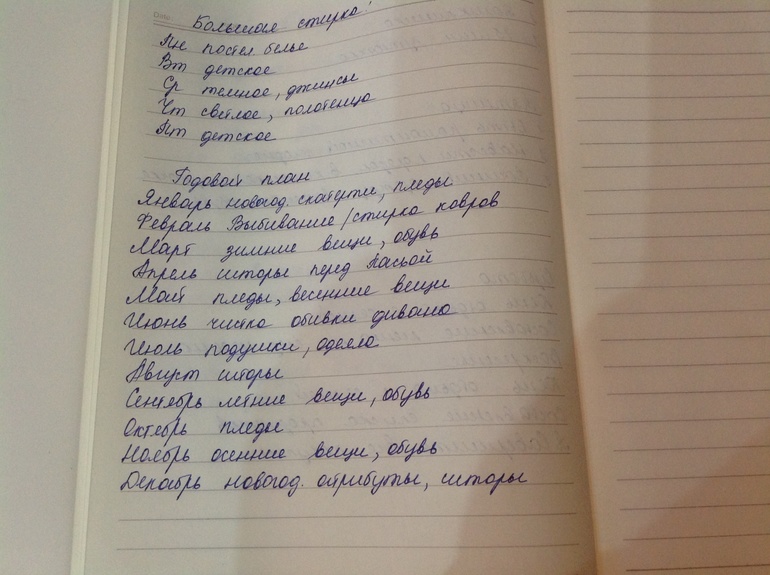 Date:
Большая стирка!
Пн постел белье
Вт детское
Ср темное, джинсы
Чт светлое, полотенца
Пт детское
Годовой план
Январь новогод. скатерти, пледы
Февраль Выбивание/стирка ковров
Март зимние вещи, обувь
Апрель шторы перед Пасхой
Май пледы, весенние вещи
Июнь чистка обивки дивана
Июль подушки, одеяла
Август шторы
Сентябрь летние вещи, обувь
Октябрь пледы
Ноябрь осенние вещи, обувь
Декабрь новогод. атрибуты, шторы